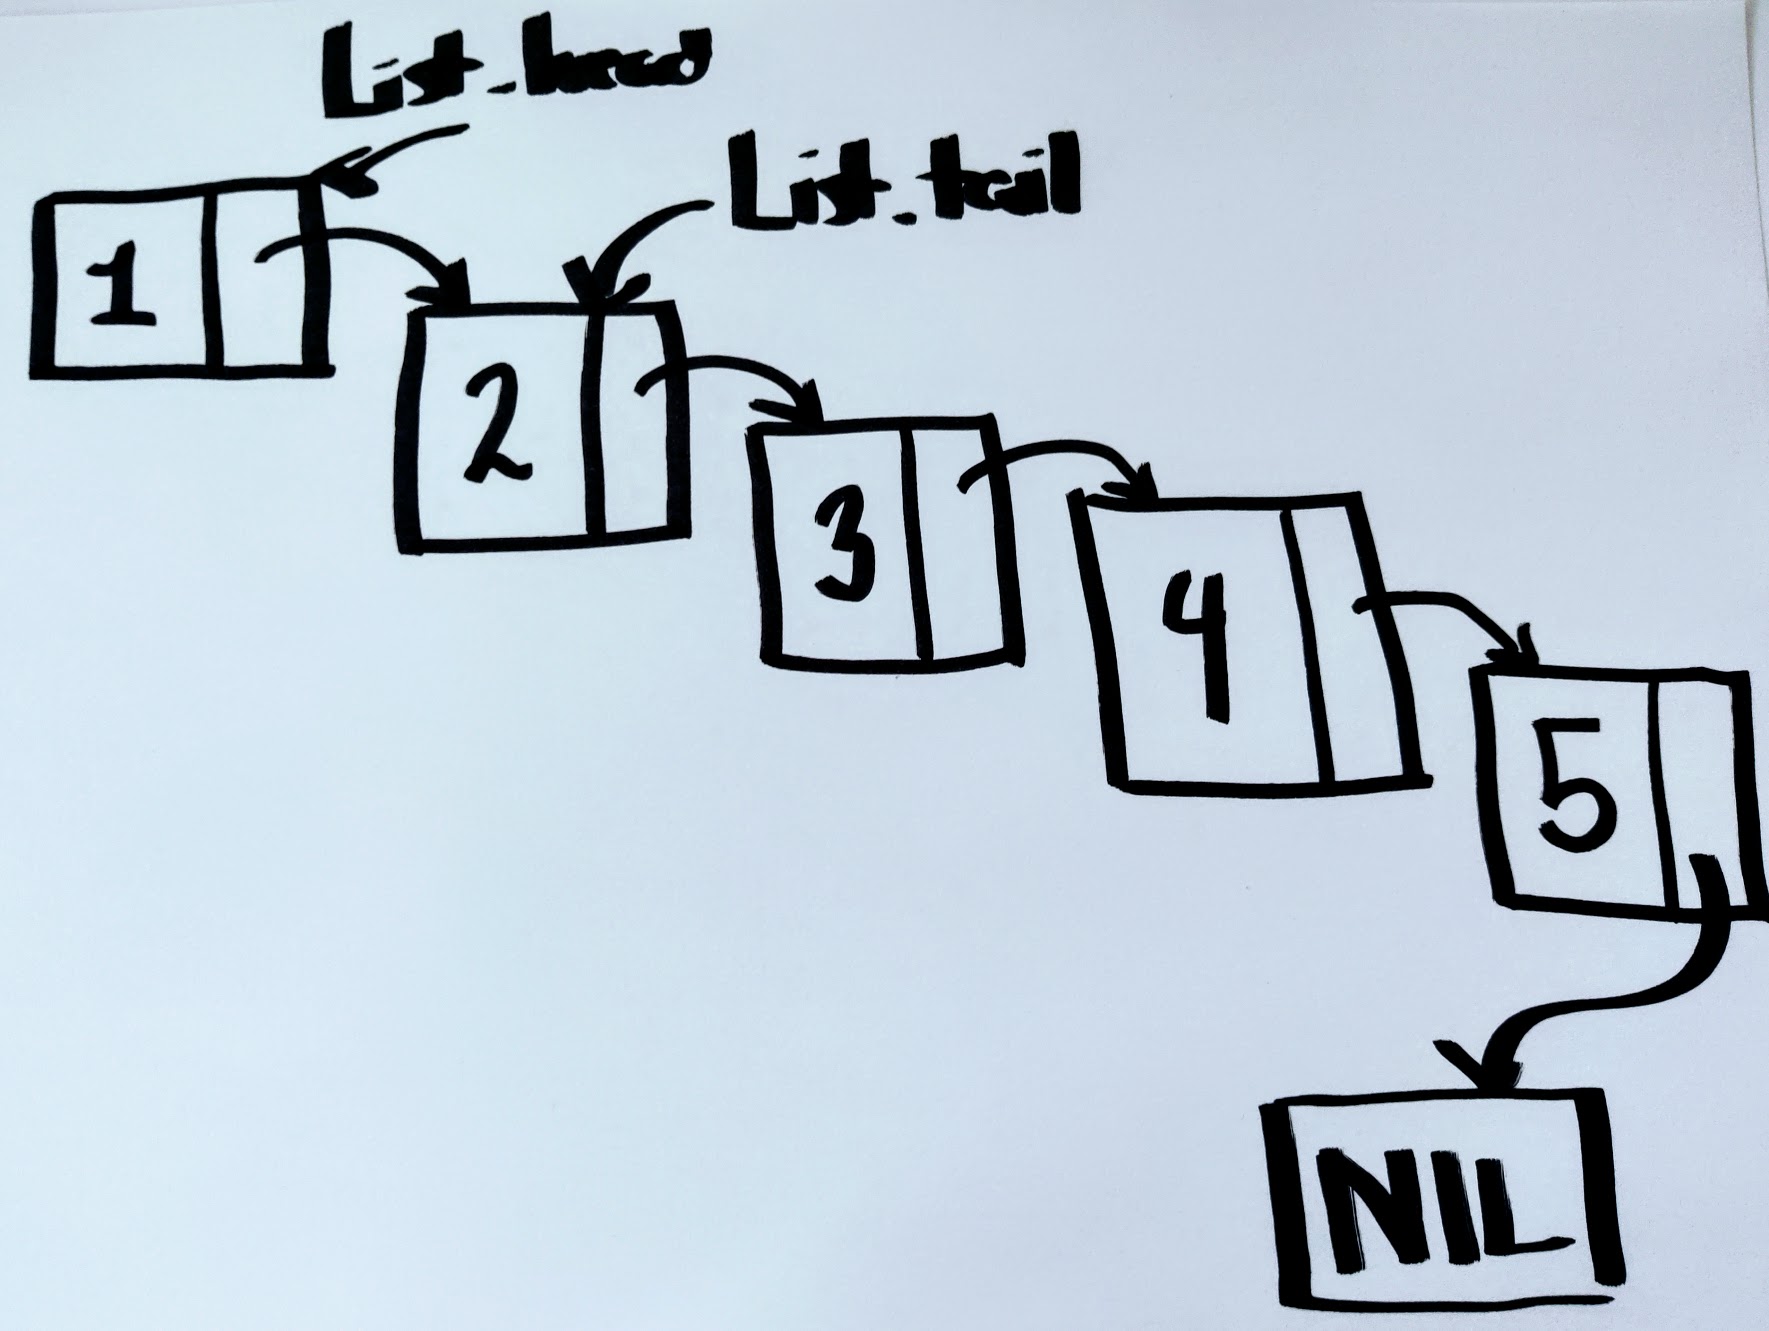 List.head
List.tail
1
2
3
4
5
NIL